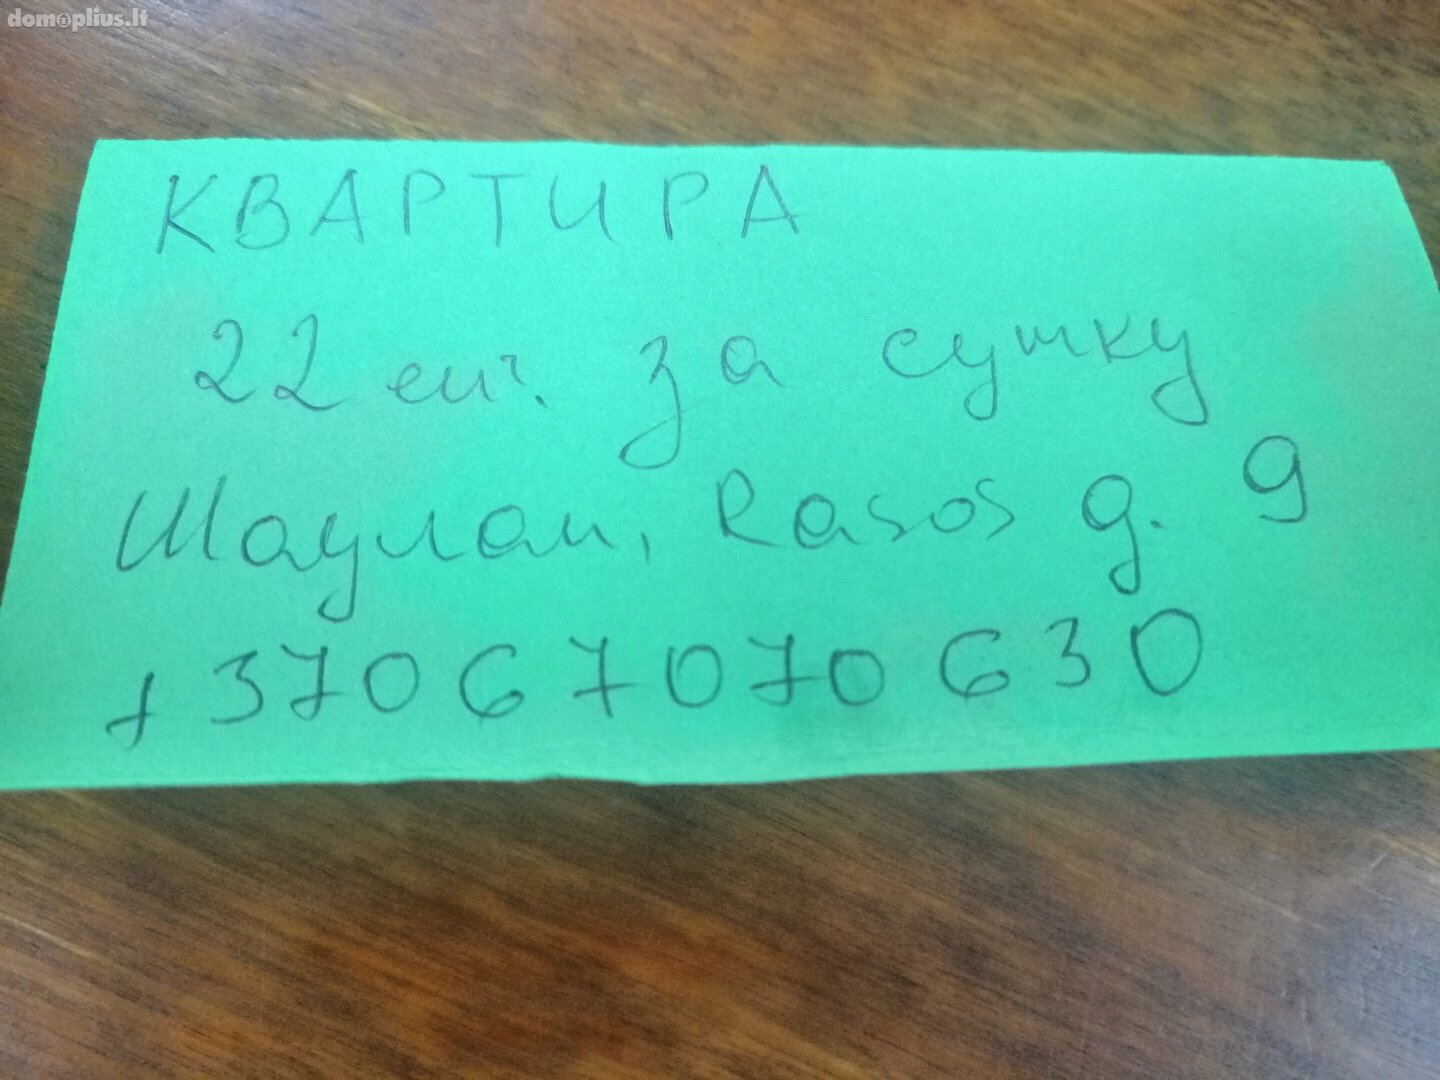 domoplius.lt
КВАРТИРА
22 eur. за сутку
Шаулаи, Rasos g. 9
+37067070630